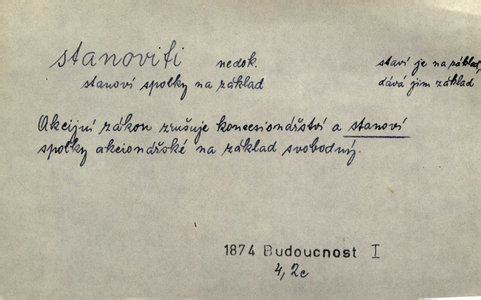 stanoviti nedok. staví je na základ,
stanoví spolky na základ dává jim základ
Akcijní zákon zrušuje koncesionářství a stanoví
spolky akcionářské na základ svobodný.
1874 Budoucnost I
4, 2c